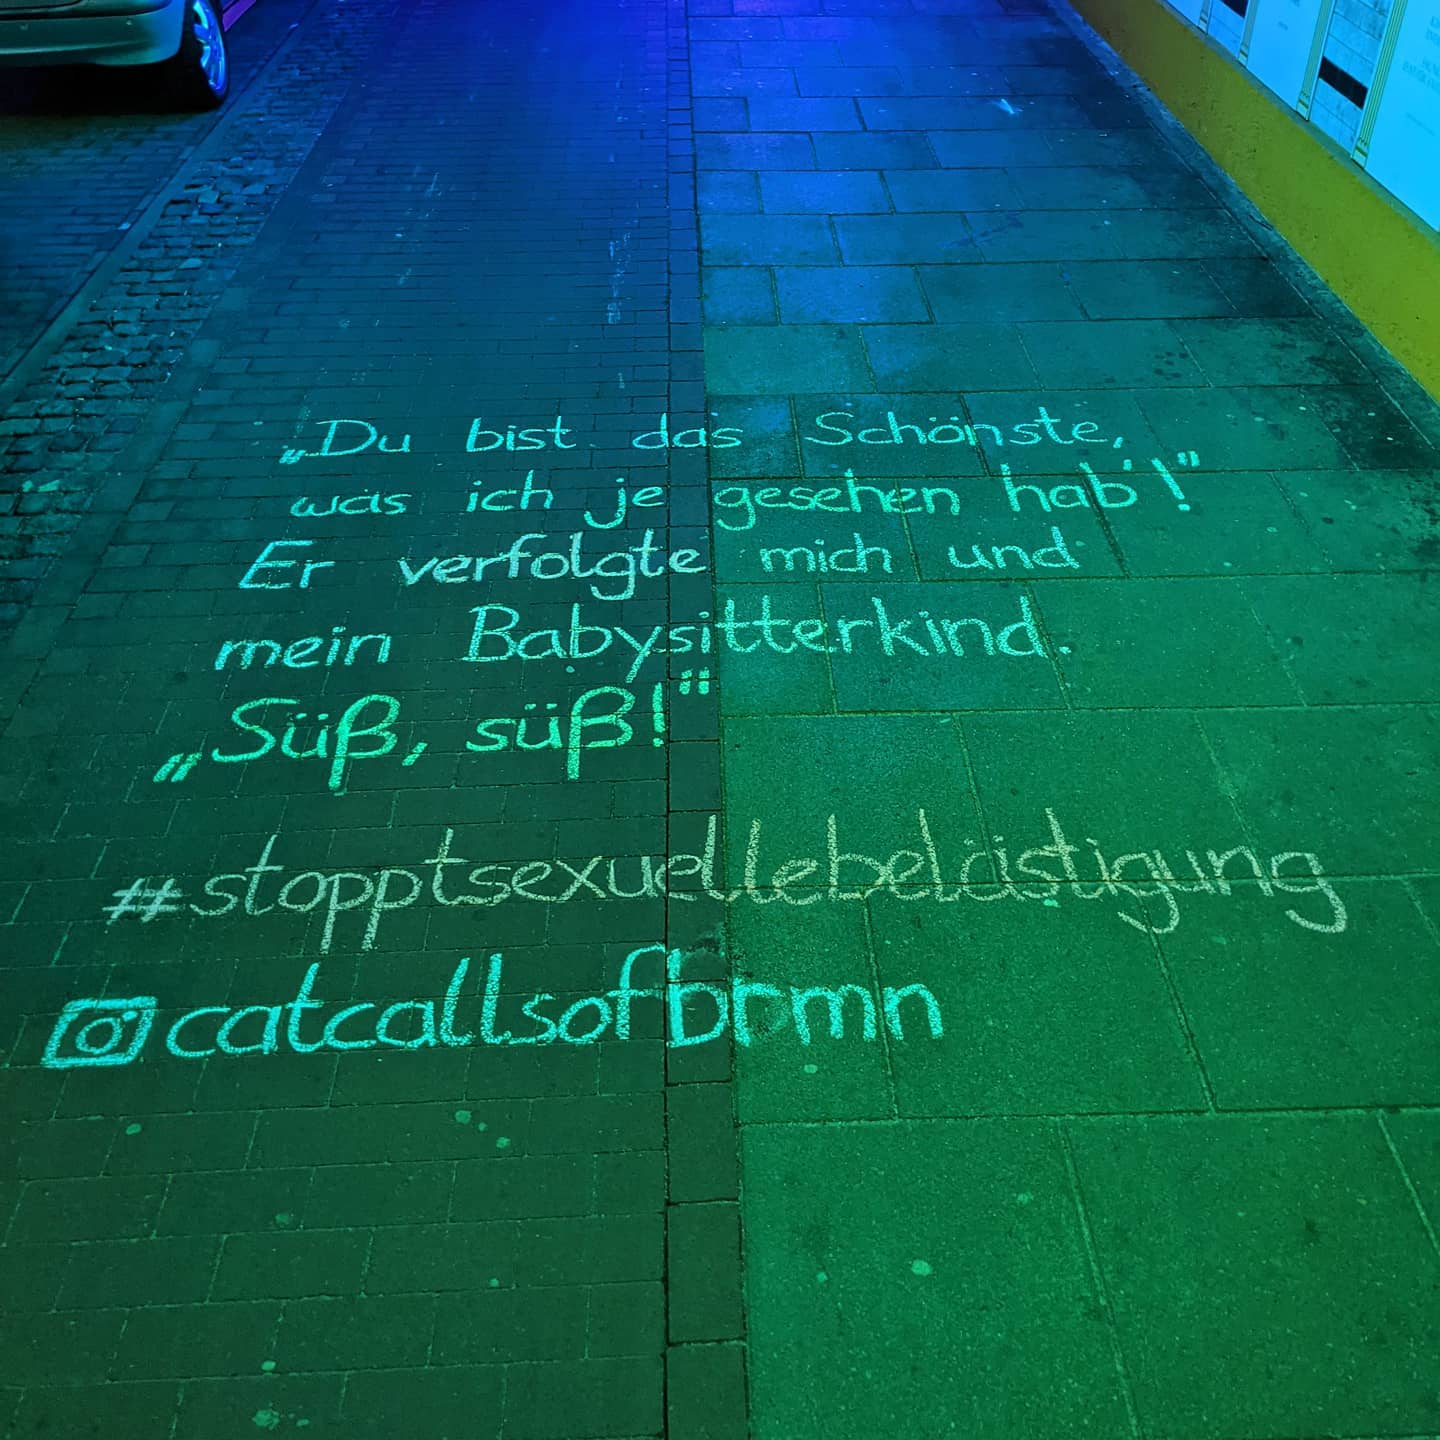 „Du bist das Schönste,
was ich je gesehen hab'!"
Er verfolgte mich und
mein Babysitterkind.
„Süß, süß!"
#stopptsexuellebelästigung
catcallsofbrmn